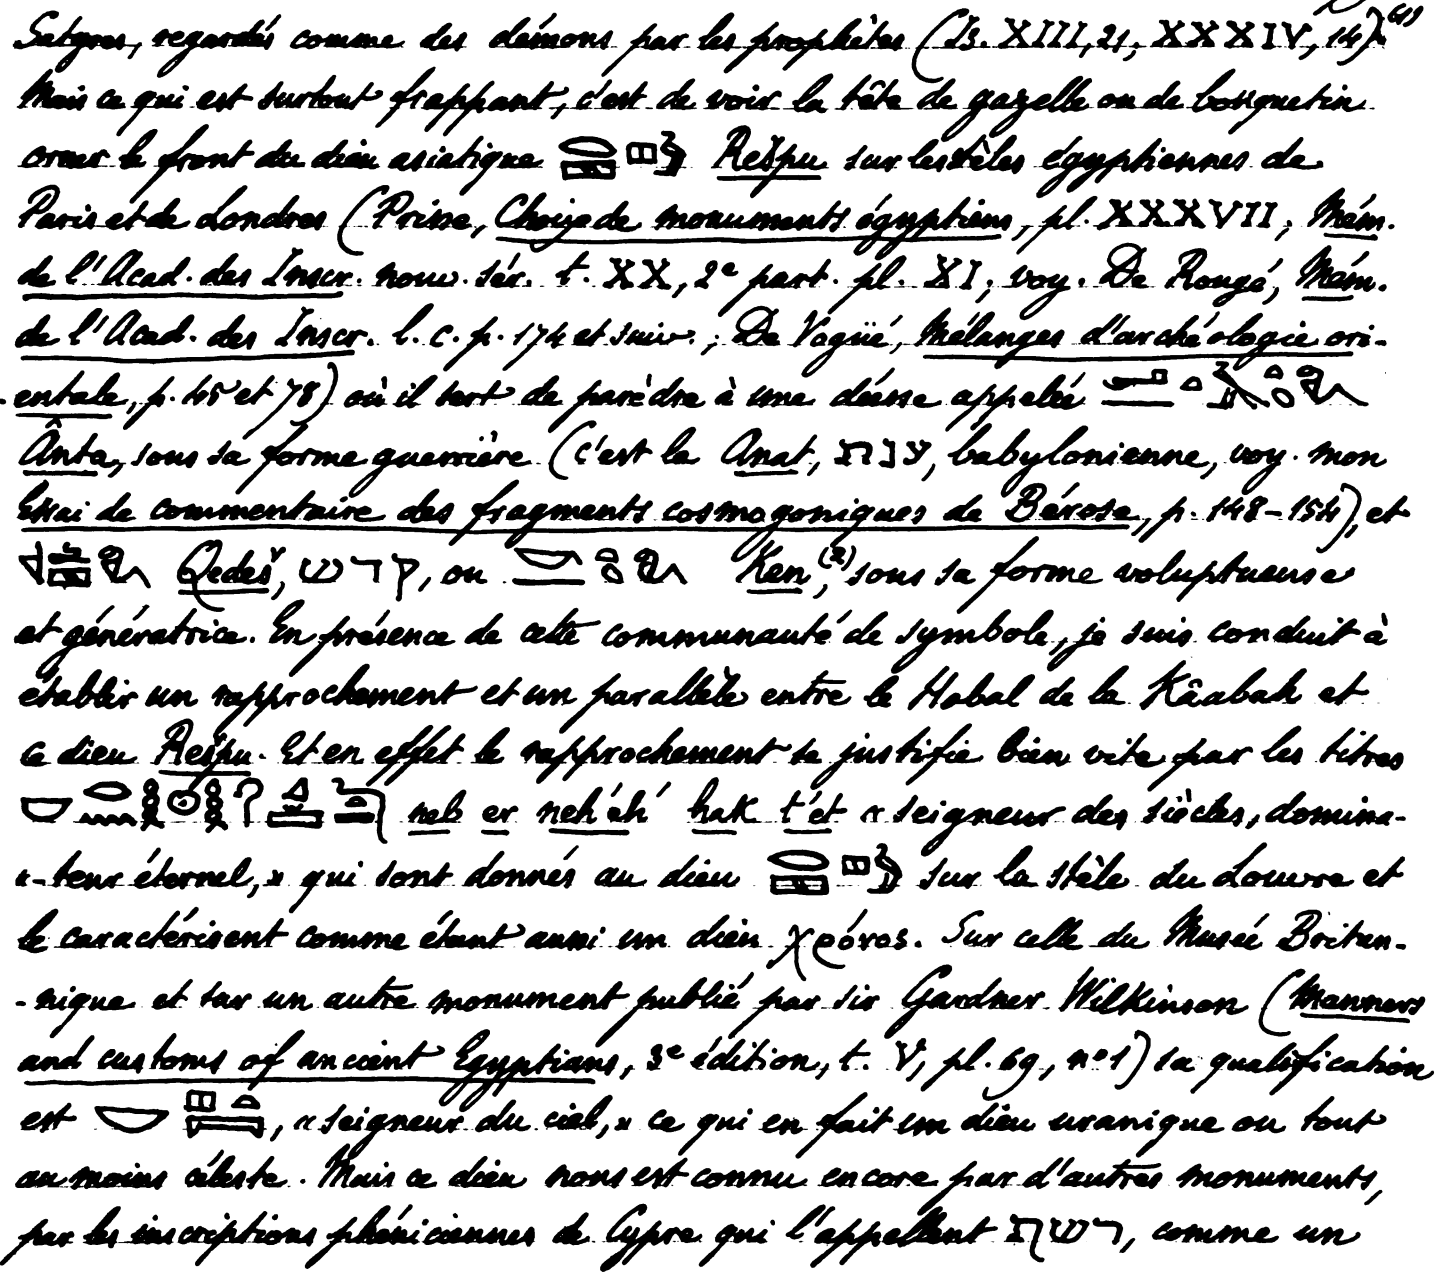 Satyres, regardés comme des démons par les prophètes (Is. XIII, 21, XXXIV, 14).(1)
Mais ce qui est surtout frappant, c'est de voir la tête de gazelle ou de bouquetin
orner le front du dieu asiatique 𓂋𓈙𓊪𓅱 Rešpu sur les stèles égyptiennes de
Paris et de Londres (Prisse, Choix de monuments égyptiens, pl. XXXVII; Mém.
de l'Acad. des Inscr. nouv. sér. t. XX, 2e part. pl. XI; voy. De Rougé, Mém.
de l'Acad. des Inscr. l. c. p. 174 et suiv.; De Vogüé, Mélanges d'archéologie ori-
-entale, p. 45 et 78) où il sert de parèdre à une déesse appelée
Ânta, sous sa forme guerrière (c'est la Anat, ענת, babylonienne, voy. mon
Essai de commentaire des fragments cosmogoniques de Bérose, p. 148-154), et
Qedeš, קדש, ou Ken,(2) sous sa forme voluptueuse
et génératrice. En présence de cette communauté de symbole, je suis conduit à
établir un rapprochement et un parallèle entre le Hobal de la Kâabah et
ce dieu Rešpu. Et en effet le rapprochement se justifie bien vite par les titres
neb er neh'eh' hak t'et « seigneur des siècles, domina-
«-teur éternel, » qui sont donnés au dieu 𓂋𓈙𓊪𓅱 sur la stèle du Louvre et
le caractérisent comme étant aussi un dieu χρόνος. Sur celle du Musée Britan-
-nique et sur un autre monument publié par sir Gardner Wilkinson (Manners
and customs of ancient Egyptians, 3e édition, t. V, pl. 69, no 1) sa qualification
est 𓎟 𓊪𓏏𓇯, « seigneur du ciel, » ce qui en fait un dieu uranique ou tout
au moins céleste. Mais ce dieu nous est connu encore par d'autres monuments,
par les inscriptions phéniciennes de Cypre qui l'appellent רשף, comme un